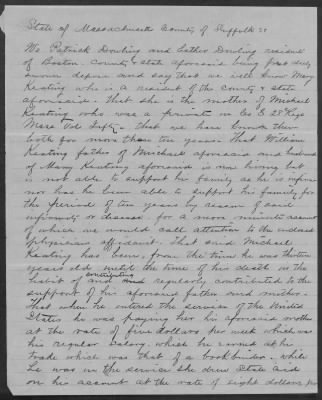 State of Massachusetts County of Suffolk ss
We Patrick Dowling and Esther Dowling resident
of Boston County & State aforesaid being first duly
sworn depose and say that we well know Mary
Keating who is a resident of the County & State
aforesaid. That she is the mother of Michael
Keating who was a private in Co E 28 Regt
Mass Vol Infty – that we have known them
both for more than ten years. That William
Keating father of Michael aforesaid and husband
of Mary Keating aforesaid is now living but
is not able to support his family as he is infirm
nor has he been able to support his family for
the period of ten years by reason of said
infirmity or disease. for a more minute account
of which we would call attention to the enclosed
physicians affidavit. That said Michael
Keating has been, from the time he was thirteen
years old until the time of his death in the
habit of contributing and regularly contributed to the
support of his aforesaid father and mother.
That when he entered the service of the United
States he was paying her his aforesaid mother
at the rate of five dollars per week which was
his regular salary, which he earned at his
trade which was that of a bookbinder. while
he was in the service she drew State aid
on his account at the rate of eight dollars per